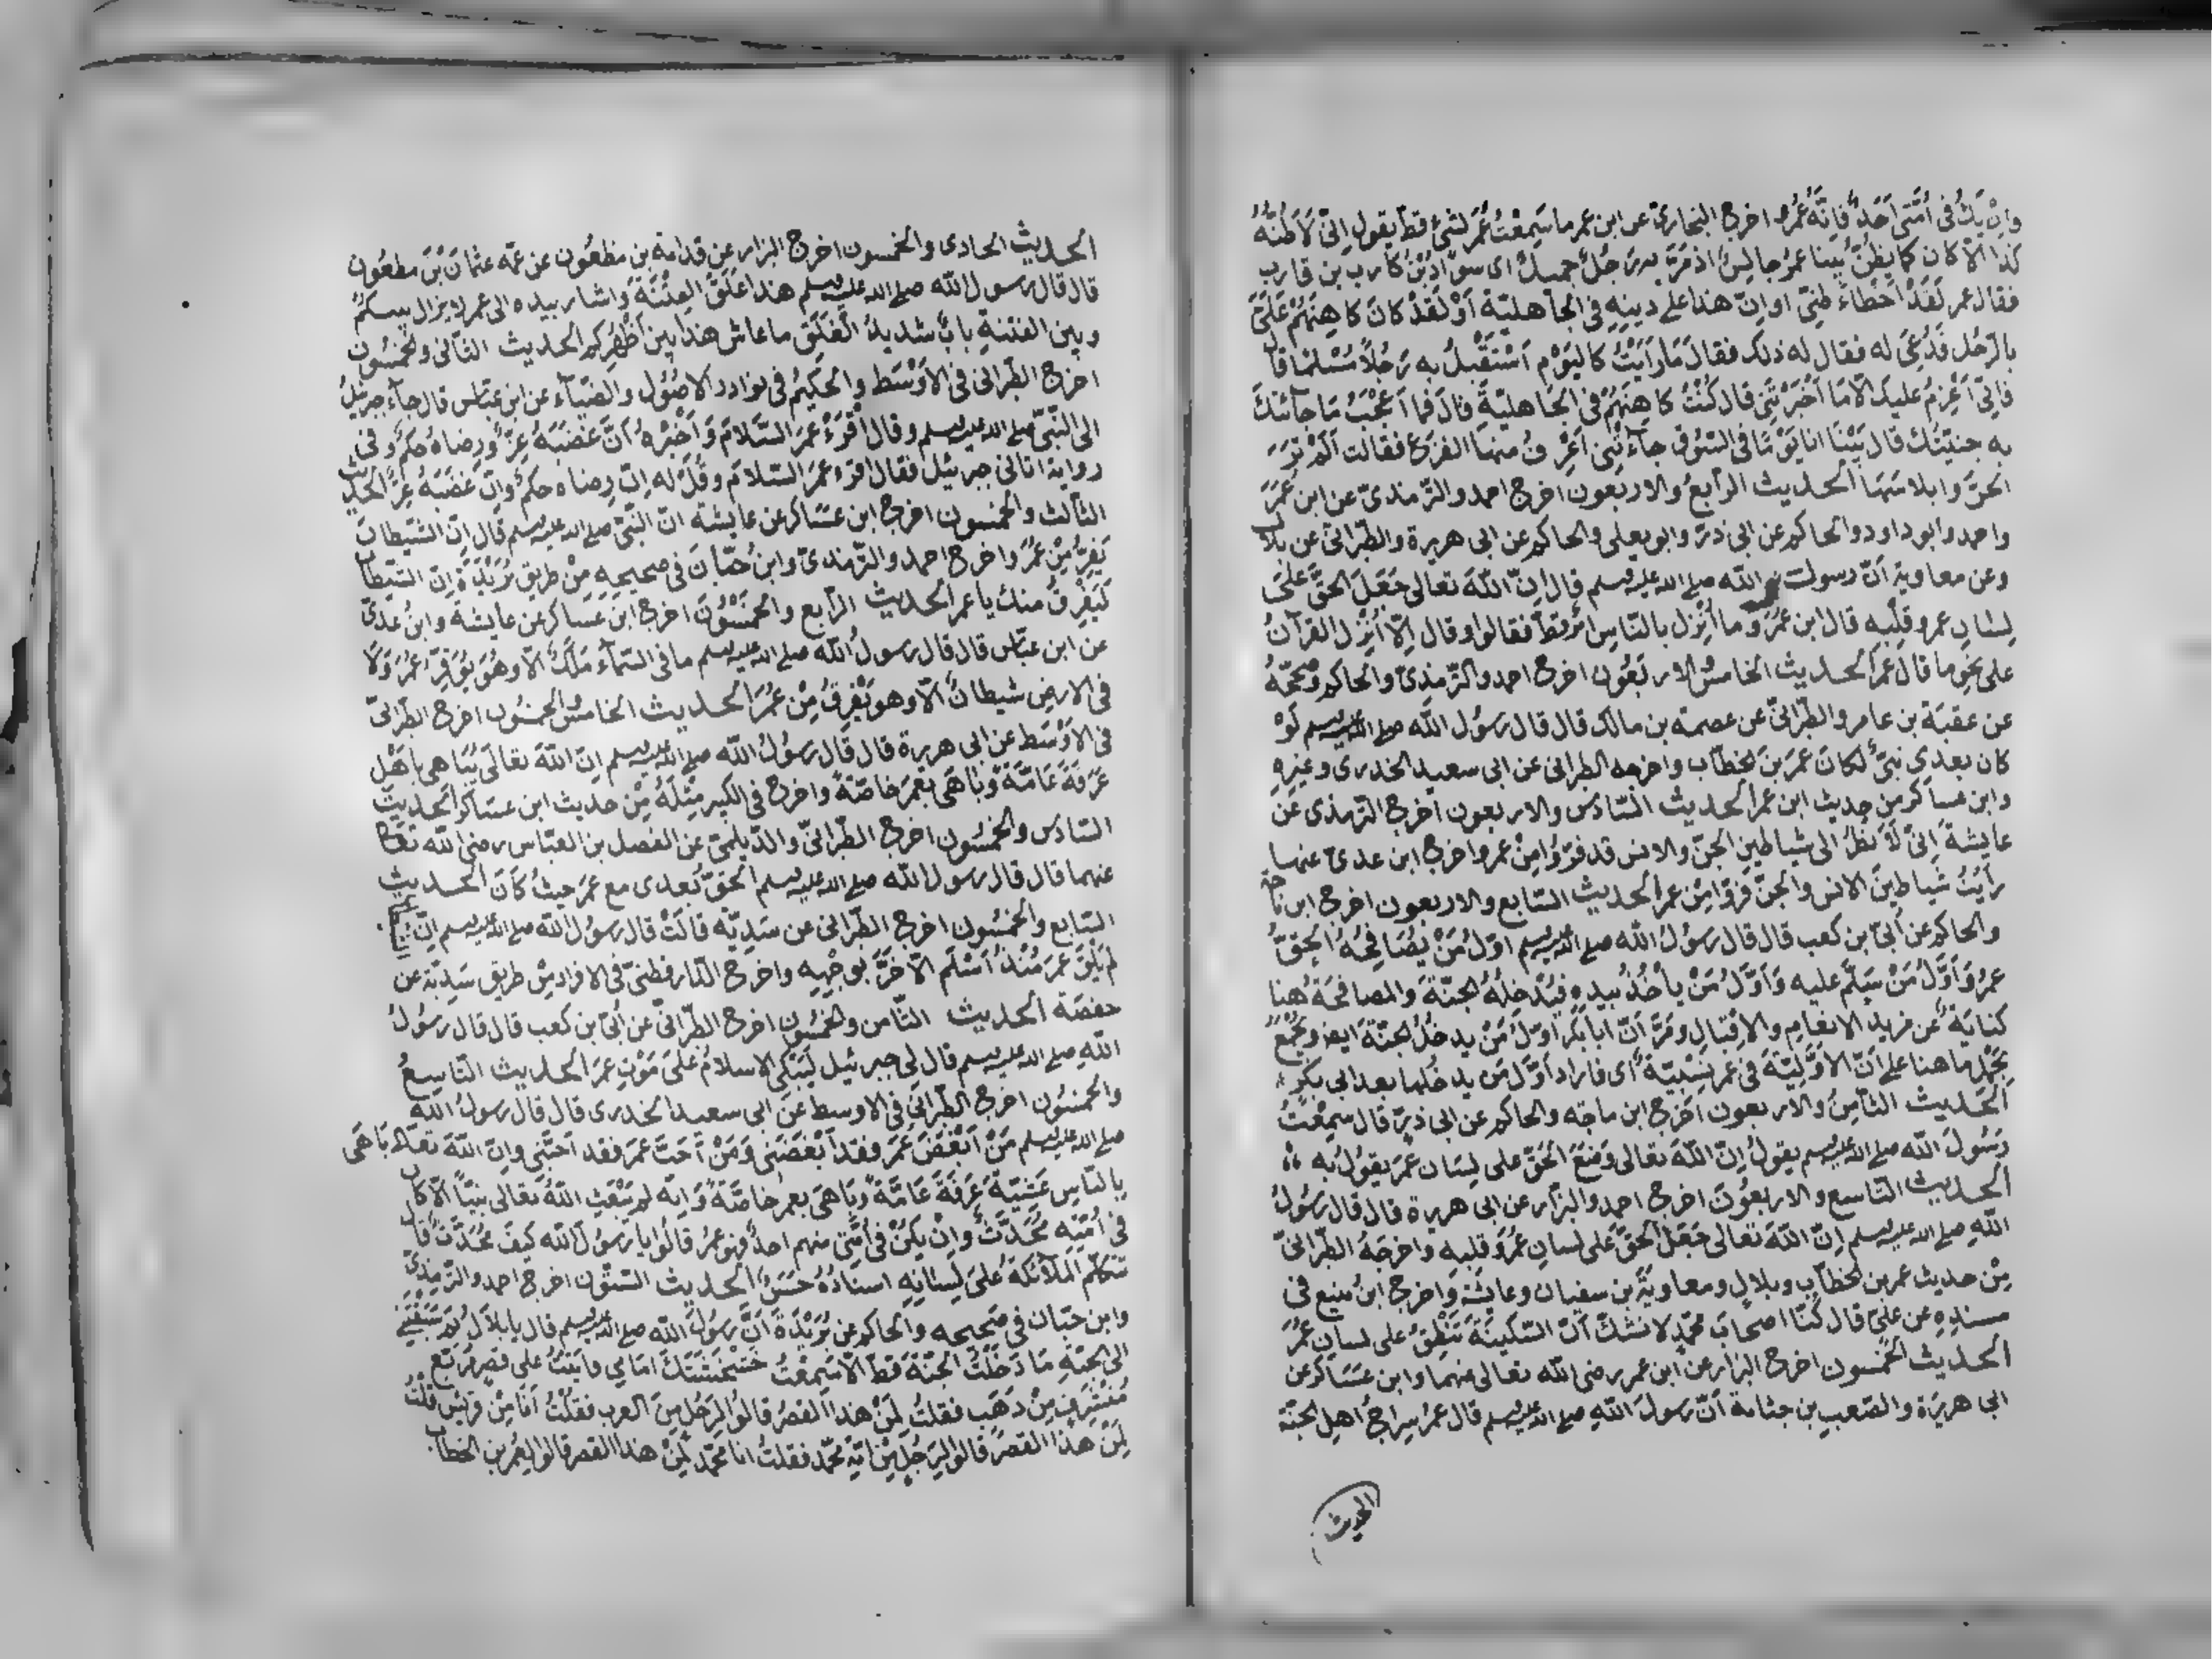 وان يك في أمتي أحد فإنه عمر اخرج البخاري عن ابن عمر ما سمعت عمر لشئ قط يقول إني لأظنه
كذا الا كان كما يظن بينا عمر جالس اذ مر به رجل جميل اى سواد بن كارب بن قارب
فقال عمر لقد أخطاء ظني او ان هذا على دينه في الجاهلية أو لقد كان كاهنهم على
بالرجل فدعى له فقال له ذلك فقال ما رأيت كاليوم استقبل به رجلا مسلما قا
فانى أعزم عليك الا ما أخبرتني قال كنت كاهنهم في الجاهلية قال فما اعجب ما جآئتك
به جنيتك قال بينا انا يوما في السوق جآءتني اعرف منها الفزع فقالت ألم تر
الجن وابلاسها الحديث الرابع والاربعون اخرج احمد والترمذي عن ابن عمر
واحمد وابو داود والحاكم عن ابي ذر وابو يعلى والحاكم عن ابى هريرة والطبراني عن بلال
وعن معاوية أن رسول الله صلى الله عليه وسلم قال ان الله تعالى جعل الحق على
لسان عمر وقلبه قال ابن عمر وما أنزل بالناس امر قط فقالوا وقال إلا أنزل القرآن
على نحو ما قال عمر الحديث الخامس والاربعون اخرج احمد والترمذي والحاكم وصححه
عن عقبة بن عامر والطبراني عن عصمة بن مالك قال قال رسول الله صلى الله عليه وسلم لو
كان بعدى نبي لكان عمر بن الخطاب واخرجه الطبراني عن ابى سعيد الخدرى وغيره
وابن عساكر من حديث ابن عمر الحديث السادس والاربعون اخرج الترمذى عن
عايشة اني لأنظر الى شياطين الجن والانس قد فروا من عمر واخرج ابن عدى عنها
رأيت شياطين الانس والجن فروا من عمر الحديث السابع والاربعون اخرج ابن ماجه
والحاكم عن أبي بن كعب قال قال رسول الله صلى الله عليه وسلم اول من يصافحه الحق
عمر وأول من سلم عليه وأول من يأخذ بيده فيدخله الجنة والمصافحة هنا
كناية عن مزيد الانعام والاقبال ومر أن ابا بكر أول من يدخل الجنة ايضا ويجمع
بحمل ما هنا على ان الاولية في عمر نسبية أى فاراد أول من يدخلها بعد ابى بكر
الحديث الثامن والاربعون اخرج ابن ماجه والحاكم عن ابى ذر قال سمعت
رسول الله صلى الله عليه وسلم يقول ان الله تعالى وضع الحق على لسان عمر يقول به
الحديث التاسع والاربعون اخرج احمد والبزار عن ابى هريرة قال قال رسول
الله صلى الله عليه وسلم ان الله تعالى جعل الحق على لسان عمر وقلبه واخرجه الطبراني
من حديث عمر بن الخطاب وبلال ومعاوية بن سفيان وعايشة واخرج ابن منيع في
مسنده عن علي قال كنا اصحاب محمد لا نشك أن السكينة تنطق على لسان عمر
الحديث الخمسون اخرج البزار عن ابن عمر رضى الله تعالى عنهما وابن عساكر عن
ابى هريرة والصعب بن جثامة أن رسول الله صلى الله عليه وسلم قال عمر سراج أهل الجنة
الحديث
الحديث الحادى والخمسون اخرج البزار عن قدامة بن مظعون عن عمه عثمان بن مظعون
قال قال رسول الله صلى الله عليه وسلم هذا غلق الفتنة واشار بيده الى عمر لا يزال بينكم
وبين الفتنة باب شديد الغلق ما عاش هذا بين أظهركم الحديث الثانى والخمسون
اخرج الطبراني في الأوسط والحكيم في نوادر الاصول والضياء عن ابن عباس قال جآء جبرئيل
الى النبي صلى الله عليه وسلم وقال أقرء عمر السلام وأخبره أن غضبه عز ورضاه حكم وفى
رواية اتانى جبرئيل فقال اقرء عمر السلام وقل له ان رضاه حكم وان غضبه عز الحديث
الثالث والخمسون اخرج ابن عساكر عن عايشة ان النبي صلى الله عليه وسلم قال ان الشيطان
يفر من عمر واخرج احمد والترمذي وابن حبان في صحيحه من طريق بريدة ان الشيطان
ليفرق منك يا عمر الحديث الرابع والخمسون اخرج ابن عساكر عن عايشة وابن عدى
عن ابن عباس قال قال رسول الله صلى الله عليه وسلم ما في السمآء ملك الا وهو يوقر عمر ولا
في الارض شيطان الا وهو يفرق من عمر الحديث الخامس والخمسون اخرج الطبراني
في الأوسط عن ابى هريرة قال قال رسول الله صلى الله عليه وسلم ان الله تعالى يباهى بأهل
عرفة عامة وباهى بعمر خاصة واخرج في الكبير مثله من حديث ابن عساكر الحديث
السادس والخمسون اخرج الطبراني والديلمي عن الفضل بن العباس رضي الله تعالى
عنهما قال قال رسول الله صلى الله عليه وسلم الحق بعدى مع عمر حيث كان الحديث
السابع والخمسون اخرج الطبراني عن سديسة قالت قال رسول الله صلى الله عليه وسلم ان الشيطان
لم يلق عمر منذ أسلم الا خر بوجهه واخرج الدارقطني في الافراد من طريق سديسة عن
حفصة الحديث الثامن والخمسون اخرج الطبراني عن أبي بن كعب قال قال رسول
الله صلى الله عليه وسلم قال لي جبرئيل ليبكي الاسلام على موت عمر الحديث التاسع
والخمسون اخرج الطبراني في الاوسط عن ابى سعيد الخدرى قال قال رسول الله
صلى الله عليه وسلم من أبغض عمر فقد أبغضني ومن أحب عمر فقد احبني وان الله تعالى باهى
بالناس عشية عرفة عامة وباهى بعمر خاصة وانه لم يبعث الله تعالى نبيا الا كان
في أمته محدث وان يكن في أمتي منهم احد فهو عمر قالوا يا رسول الله كيف محدث قال
تتكلم الملآئكة على لسانه اسناده حسن الحديث الستون اخرج احمد والترمذي
وابن حبان في صحيحه والحاكم عن بريدة أن رسول الله صلى الله عليه وسلم قال يا بلال بم سبقتني
الى الجنة ما دخلت الجنة قط الا سمعت خشخشتك امامي فأتيت على قصر مربع
مشرف من ذهب فقلت لمن هذا القصر قالوا لرجل من العرب فقلت أنا من قريش قلت
لمن هذا القصر قالوا لرجل من امة محمد فقلت انا محمد لمن هذا القصر قالوا لعمر بن الخطاب